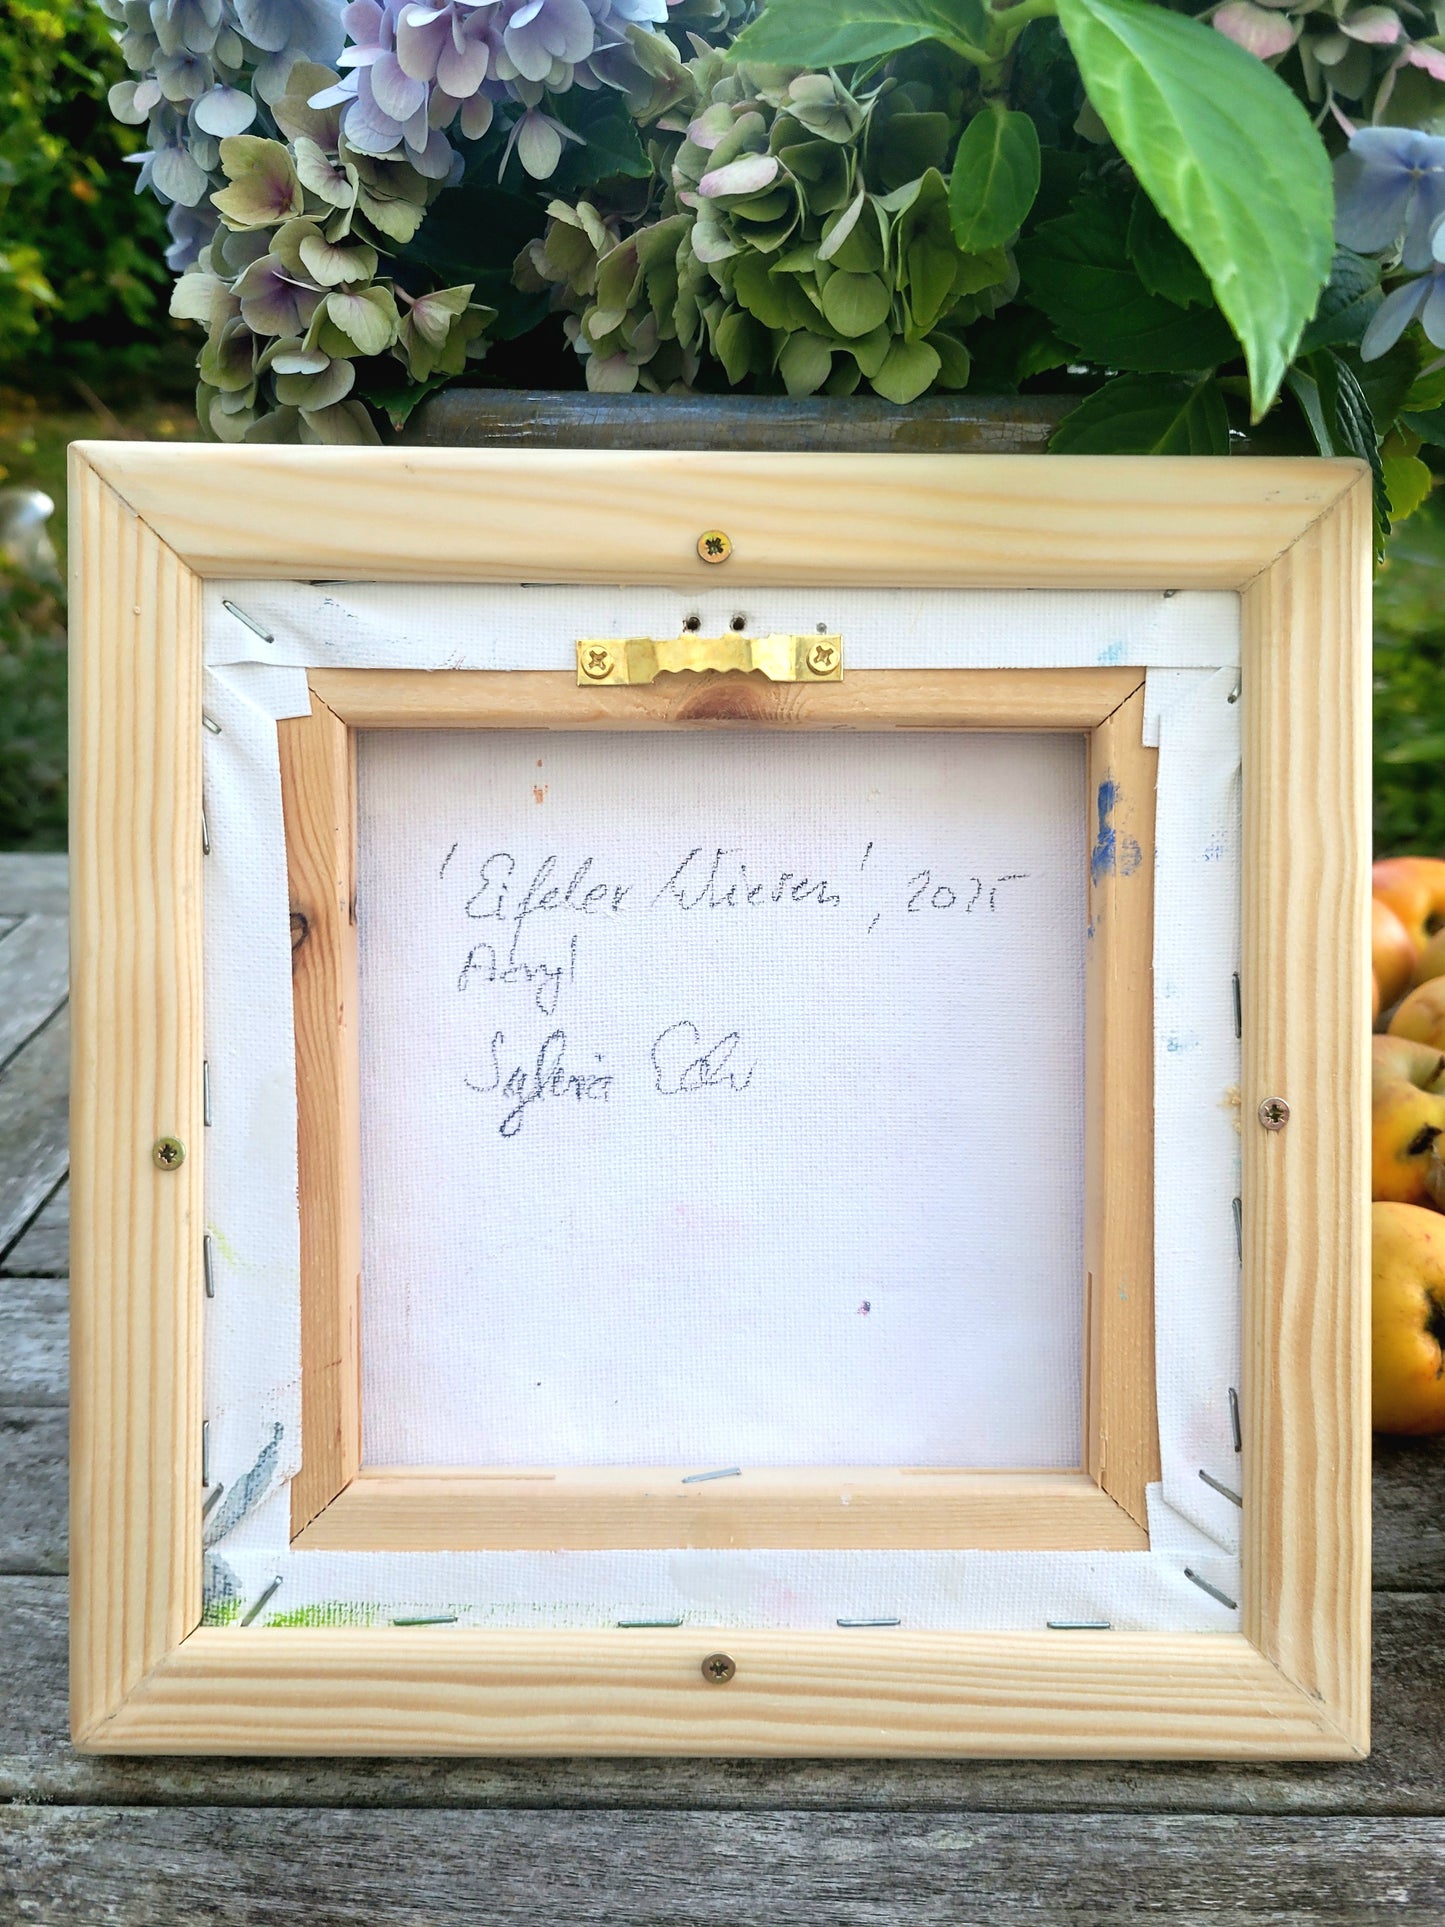 'Eifeler Wiesen', 2025
Acryl
Sylvia